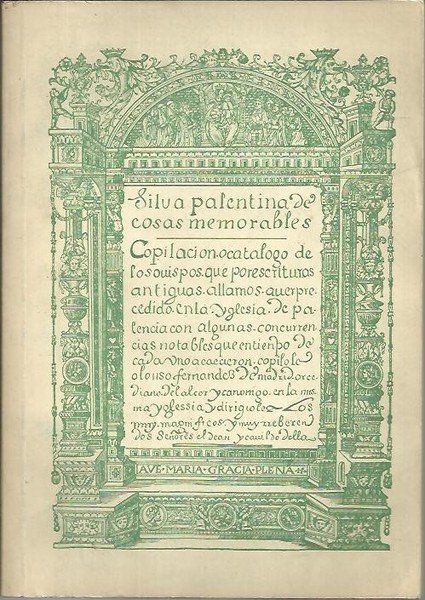 Silva palentina de
cosas memorables
Copilacion o catalogo de
los ovispos que por escrituras
antiguas allamos aver pre
cedido en la yglesia de pa
lencia con algunas concurren
cias notables que entiendo de
cada uno acaecieron copilole
alonso fernandez de madrid arce
diano del alcor y canonigo en la mis
ma yglessia y dirigiole Los
muy magnificos y muy reveren
dos señores el dean y cavildo della
AVE MARIA GRACIA PLENA